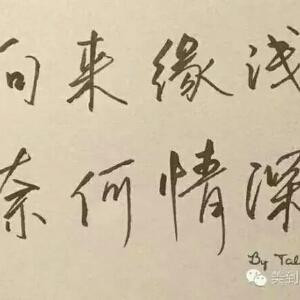 向来缘浅
奈何情深
By Tal
美到